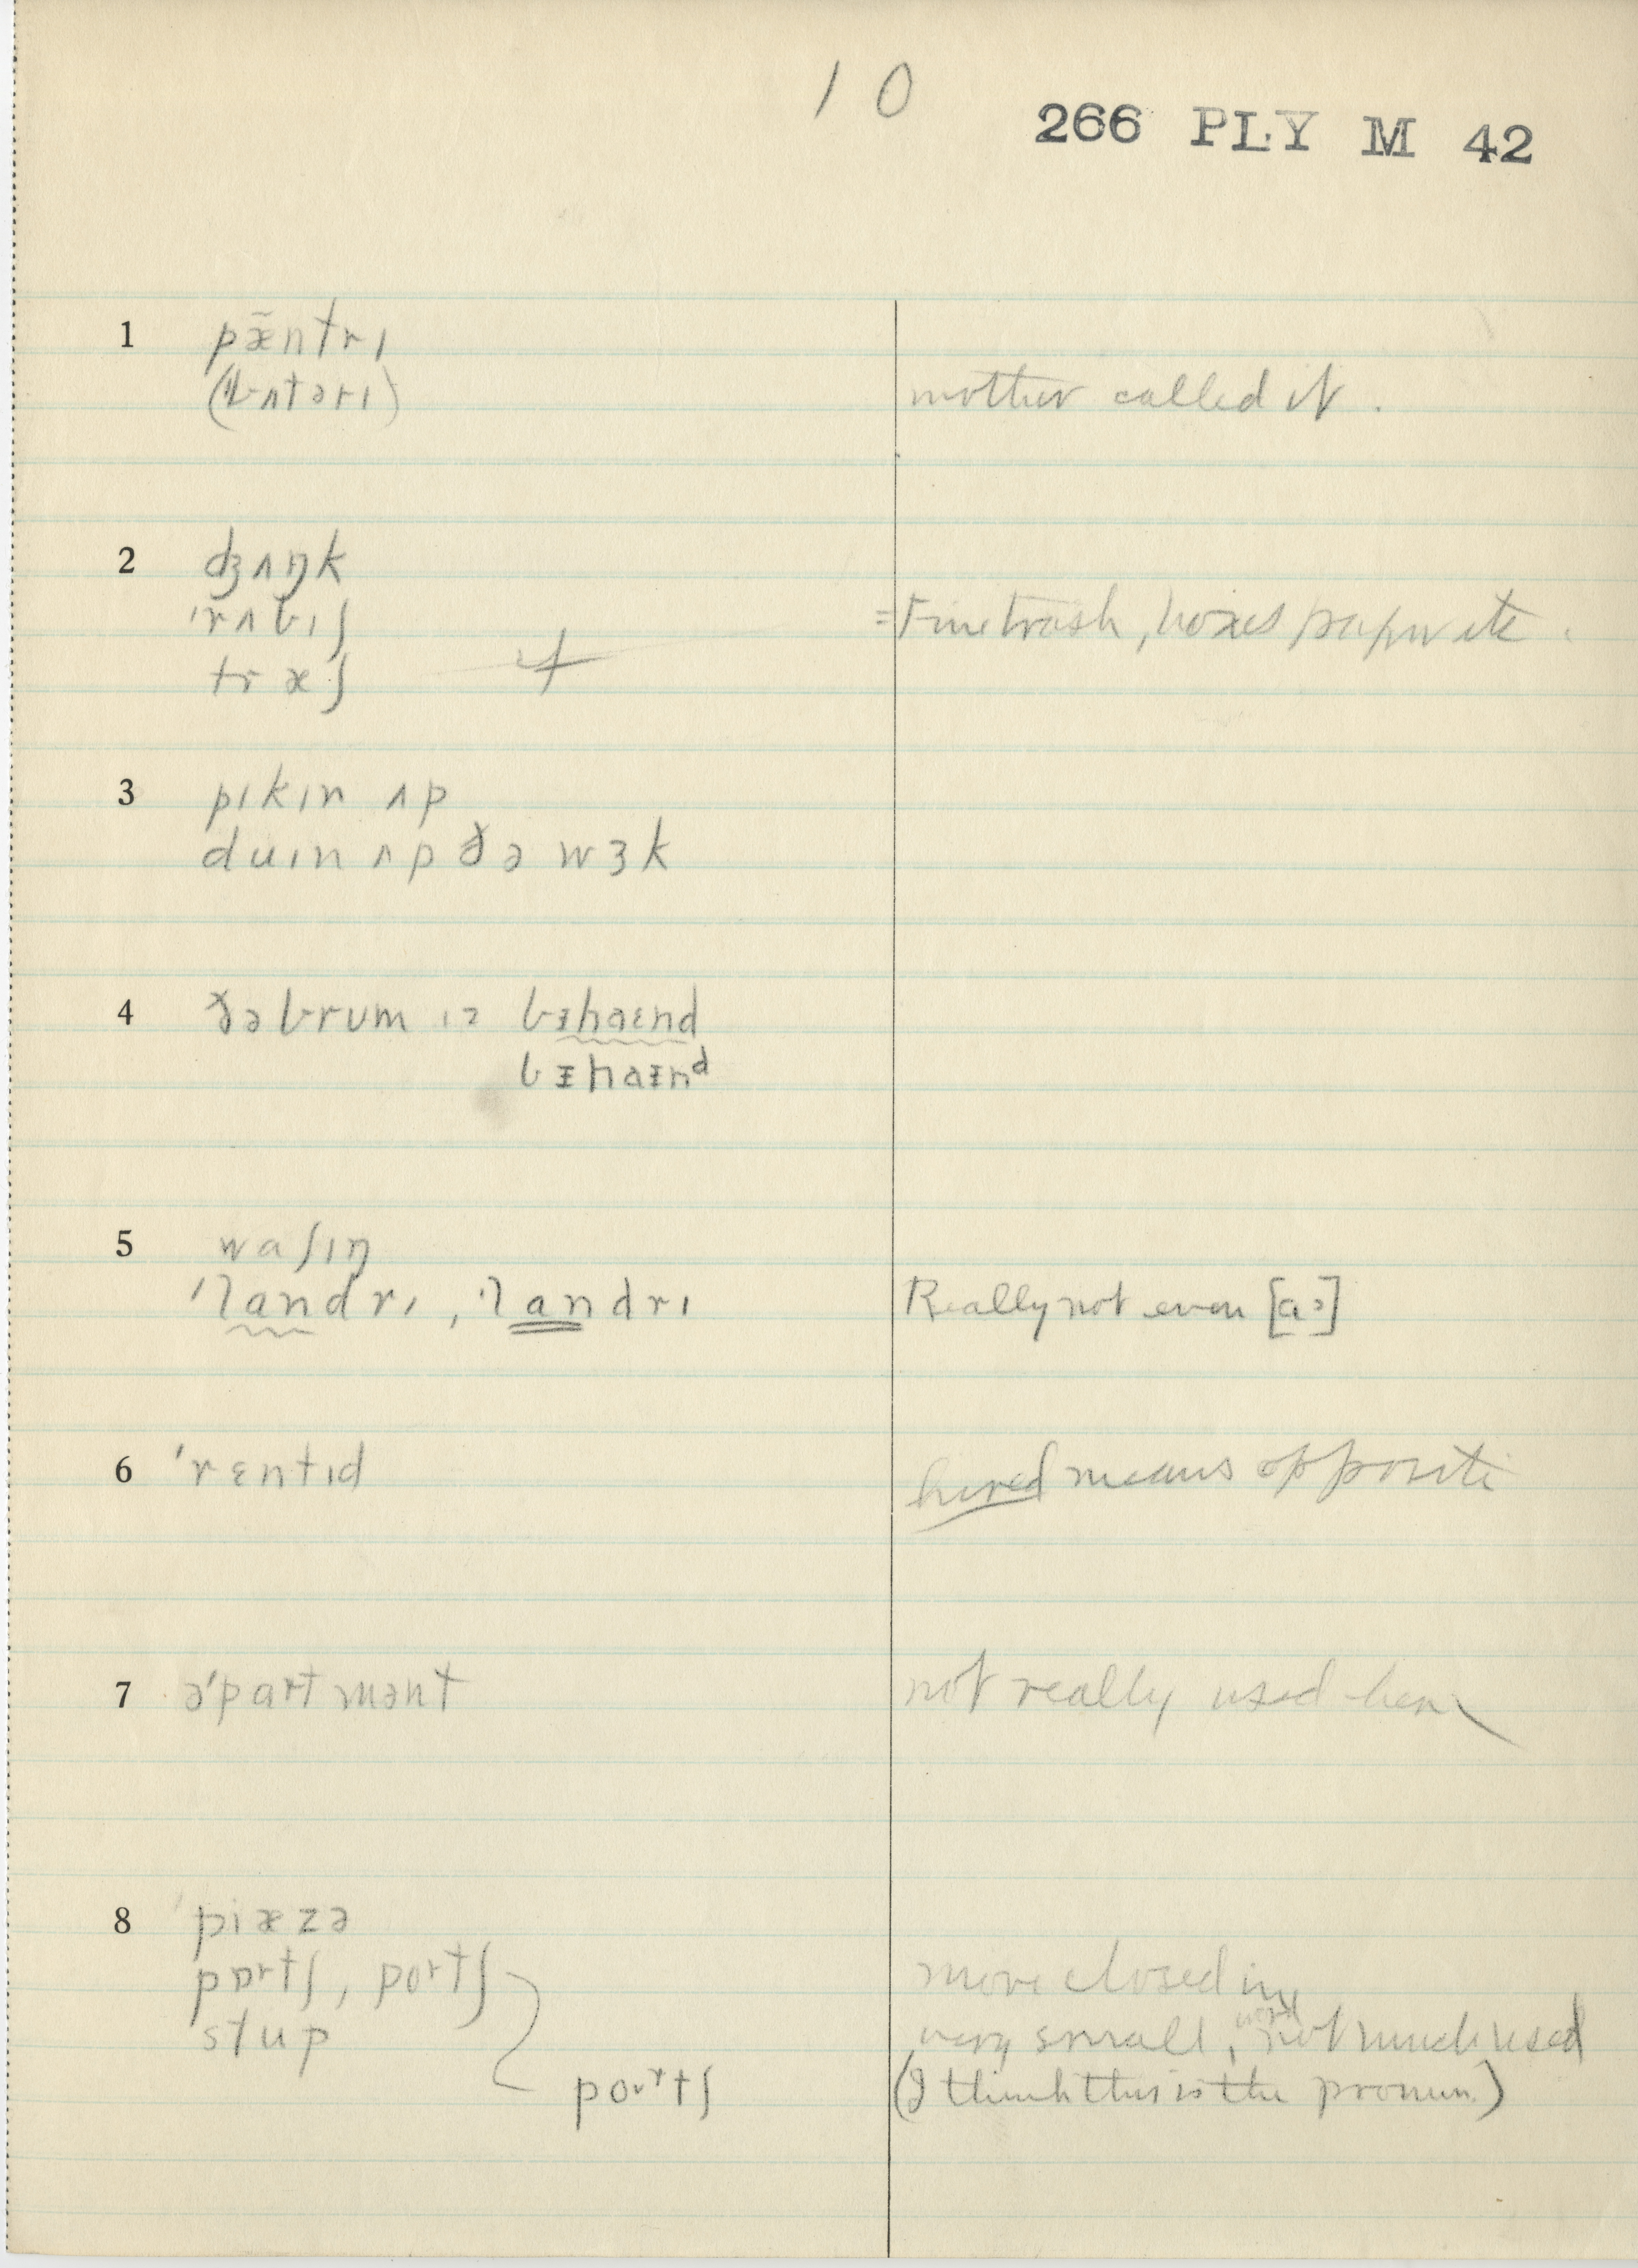 10
266 PLY M 42
1 pæ̃ntrɪ
(bʌtərɪ) mother called it.
2 ʤʌŋk
ˈrʌbɪʃ =Fine trash, boxes paper etc.
træʃ
3 pɪkɪn ʌp
duɪn ʌp ðə wɜk
4 ðə brum ɪz bɪhaɪnd
bɪhaɪnᵈ
5 waʃɪŋ
ˈlandrɪ, ˈlandrɪ Really not even [aɔ]
6 ˈrɛntɪd hired means opposite
7 əˈpartmənt not really used here
8 piæzə
pɒrtʃ, portʃ more closed in
stup very small, word not much used
poʊrtʃ (I think this is the pronun.)